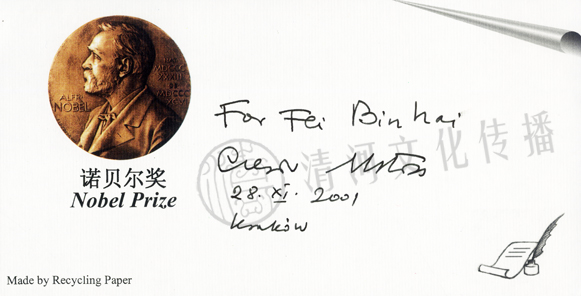 ALFR.
NOBEL
诺贝尔奖
Nobel Prize
For Fei Binhai
Czesław Miłosz
28. XI. 2001
Kraków
清河文化传播
Made by Recycling Paper